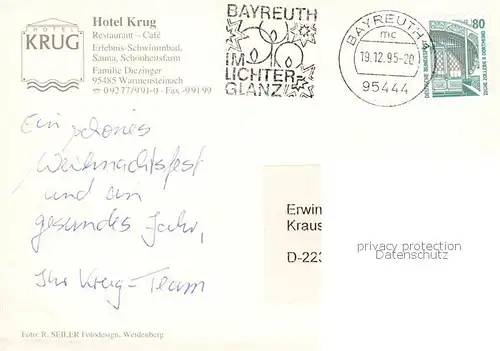 HOTEL
KRUG
Hotel Krug
Restaurant – Café
Erlebnis-Schwimmbad,
Sauna, Schönheitsfarm
Familie Diezinger
95485 Warmensteinach
☎ 0 92 77/9 91-0 · Fax -9 91 99
BAYREUTH
IM
LICHTER
GLANZ
BAYREUTH 4
mc
19.12.95-20
95444
80
DEUTSCHE BUNDESPOST
ZECHE ZOLLERN II DORTMUND
Ein schönes
Weihnachtsfest
und ein
gesundes Jahr,
Ihr Krug-Team
Erwin
Kraus
D-223
privacy protection
Datenschutz
Foto: R. SEILER Fotodesign, Weidenberg